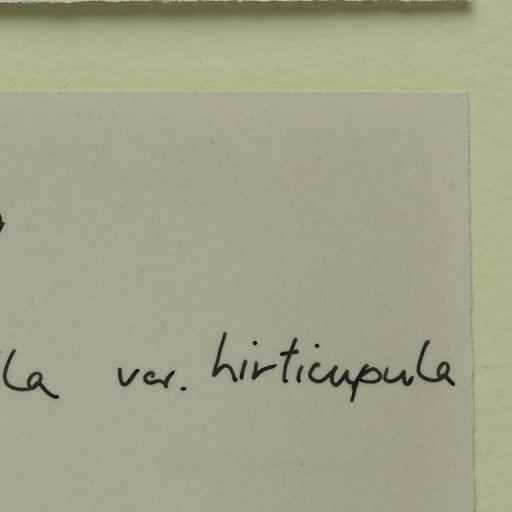 la var. hirticupula